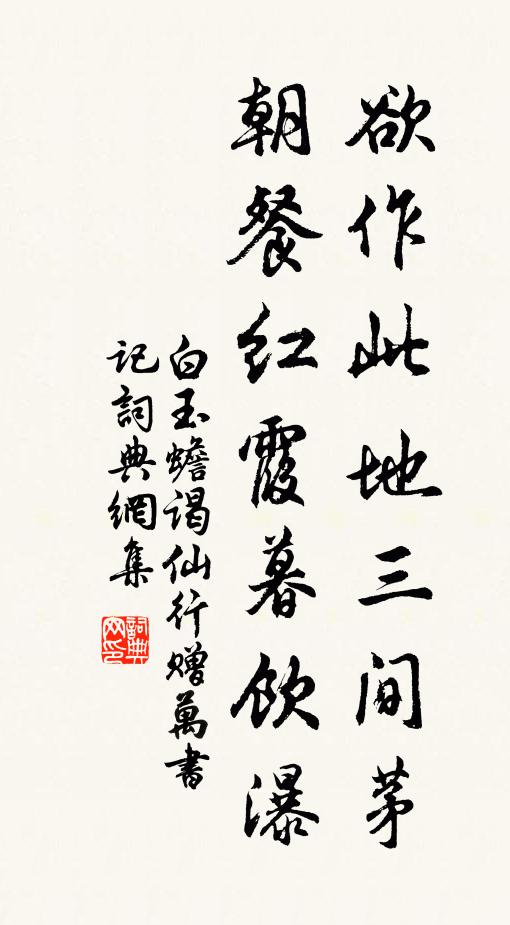 欲作此地三间茅
朝餐红霞暮饮瀑
白玉蟾谒仙行赠萬書
记词典網集
詞典
网印